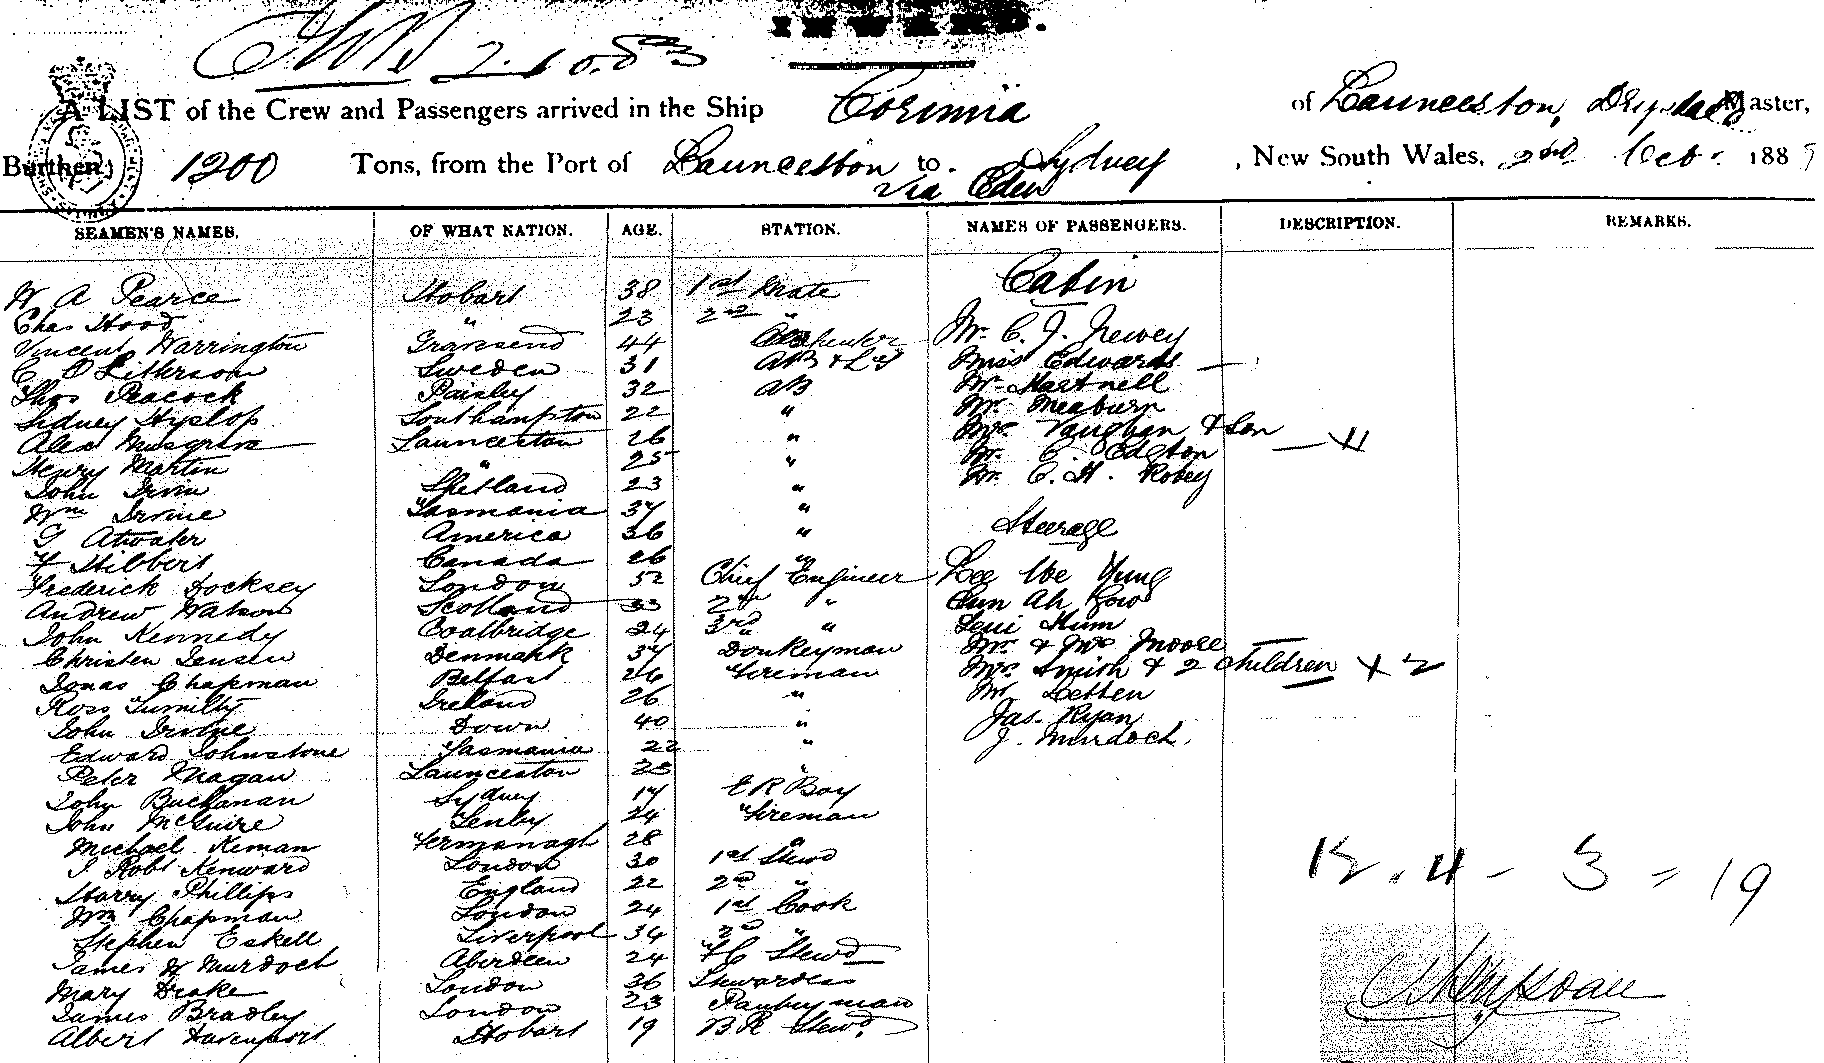 INWARD.
2.10.83
A LIST of the Crew and Passengers arrived in the Ship Corinna of Launceston, Drysdale Master,
Burthen, 1200 Tons, from the Port of Launceston to Sydney, New South Wales, 2nd Oct. 188
Via Eden
SEAMEN'S NAMES. OF WHAT NATION. AGE. STATION. NAMES OF PASSENGERS. DESCRIPTION. REMARKS.
Cabin
W A Pearce Hobart 38 1st Mate
Chas Hood " 23 2nd " Mr. C. J. Newey
Vincent Harrington Gravesend 44 Carpenter Miss Edwards
C O Peterson Sweden 31 AB & L Mr Hartnell
Thos Peacock Paisley 32 AB Mr. Meaburn
Sidney Hyslop Southampton 22 " Mrs Vaughan & Son
Alex Musgrave Launceston 26 " Mr. C. Edgton — 4
Henry Martin " 25 " Mr. C. H. Robey
John Irvin Shetland 23 "
Wm Irvine Tasmania 37 " Steerage
G Atwater America 36 "
F Hibbert Canada 26 "
Frederick Docksey London 52 Chief Engineer Lee We Yung
Andrew Watson Scotland 33 2nd " Sun Ah
John Kennedy Coatbridge 24 3rd " Hum
Christen Jensen Denmark 37 Donkeyman Mr. & Mrs Moore
Jonas Chapman Belfast 26 Fireman Mrs. Smith & 2 children X 2
Ross Tumilty Ireland 26 " Mr
John Irvine Down 40 " Jas. Ryan
Edward Johnstone Tasmania 22 " J. Murdoch.
Peter Magan Launceston 23 "
John Buchanan Sydney 17 E R Boy
John McGuire Tenby 24 Fireman
Michael Keman Fermanagh 28 "
J. Robt Kenward London 30 1st Stewd
Harry Phillips England 22 2nd "
Wm Chapman London 24 1st Cook
Stephen Eskell Liverpool 34 2nd "
James H Murdoch Aberdeen 24 FC Stewd
Mary Drake London 36 Stewardess
James Bradley London 23 Pantryman
Albert Davenport Hobart 19 B.R Stewd.
12. 4 - 3 = 19